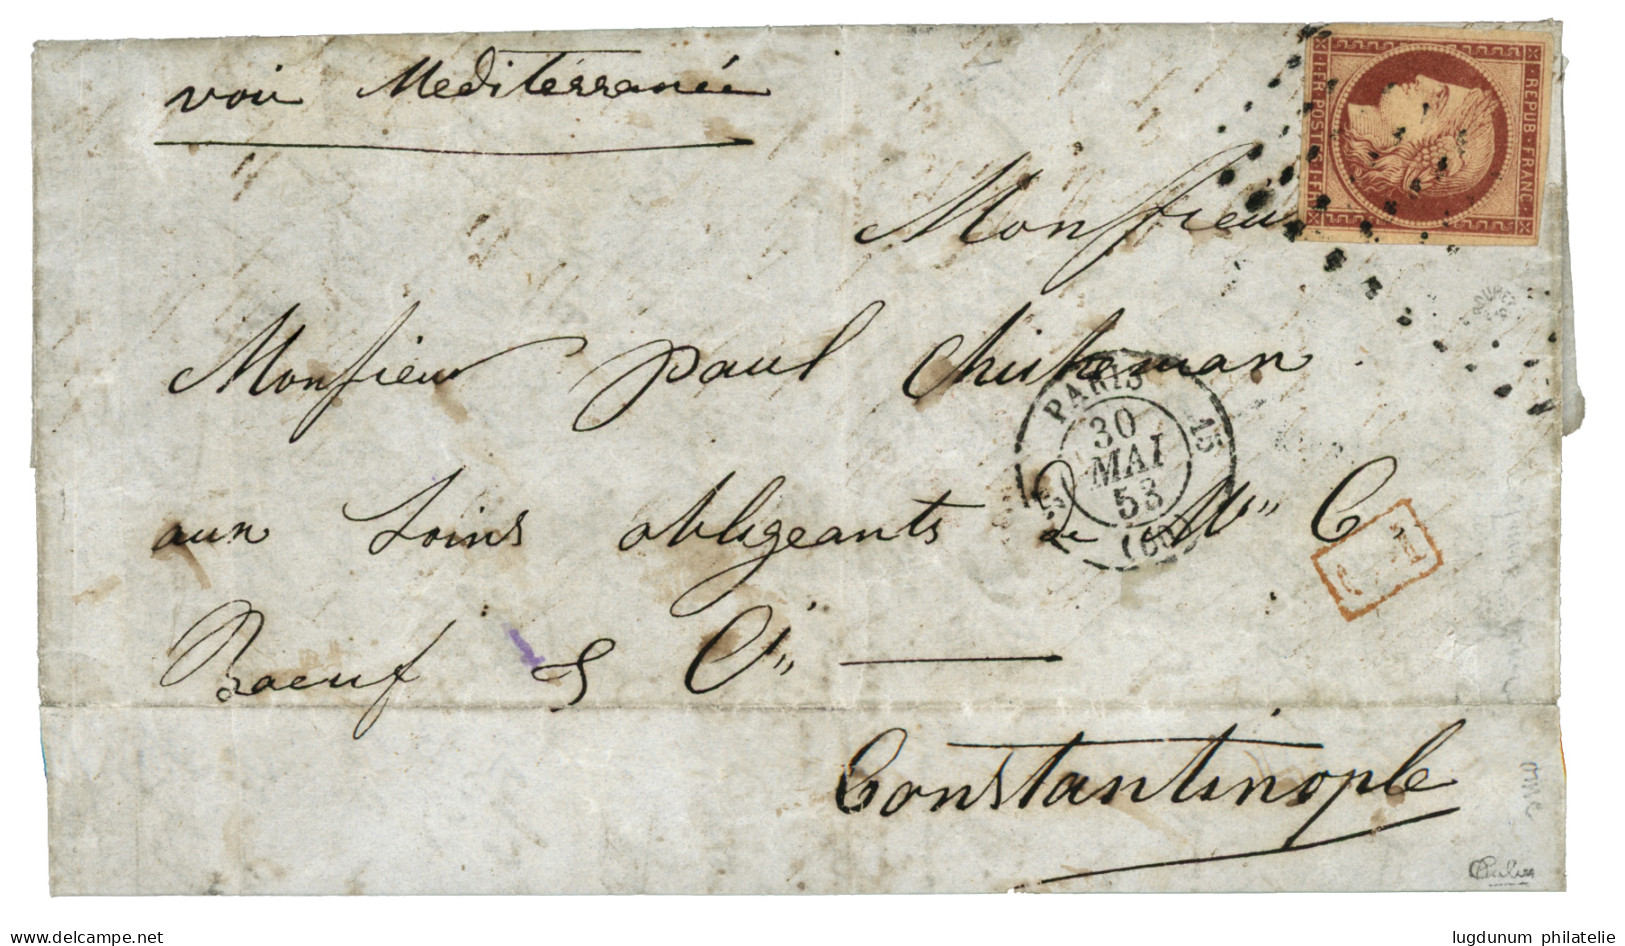 voie Mediterranée
REPUB. FRANC
1.FR.POSTES.1.FR
Monsieur
Monsieur paul
aux soins obligeants de Mrs C
Boeuf & Cie
Constantinople
PARIS
15
30
MAI
53
(60)
ROUMET
©www.delcampe.net
lugdunum philatelie